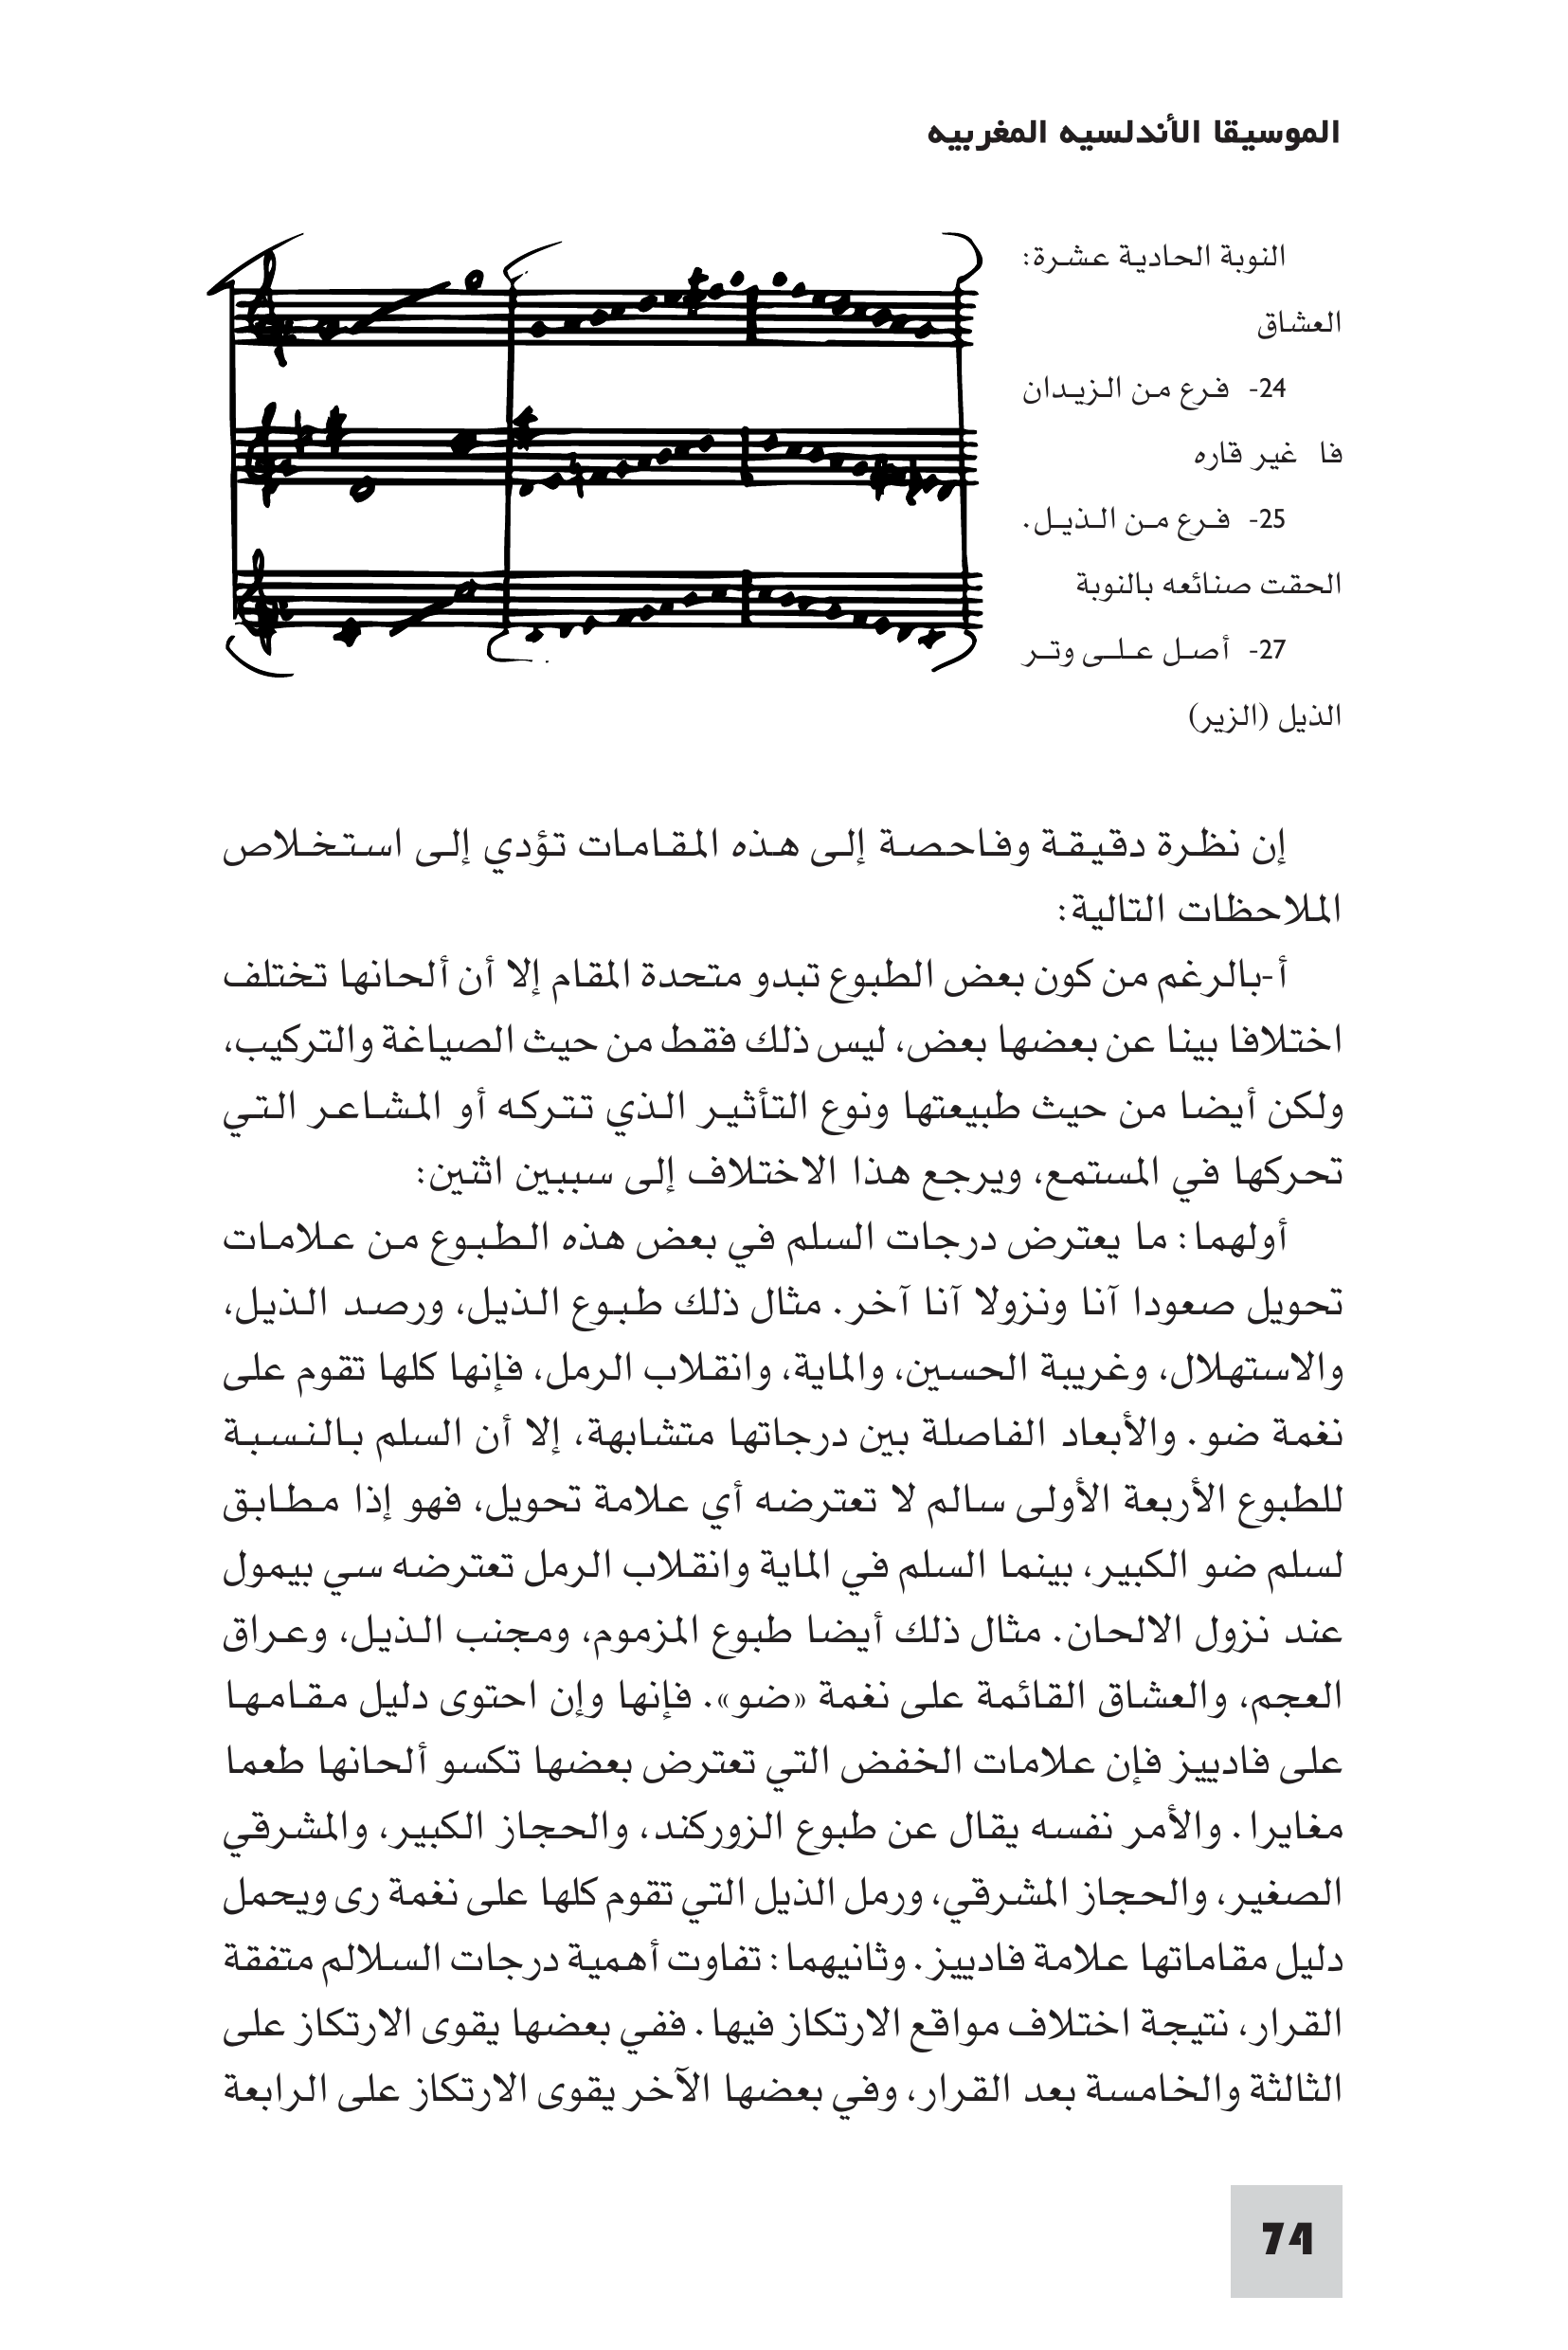 الموسيقا الأندلسيه المغربيه
النوبة الحادية عشرة:
العشاق
24- فرع من الزيدان
فا غير قاره
25- فرع من الذيل.
الحقت صنائعه بالنوبة
27- أصل على وتر
الذيل (الزير)
إن نظرة دقيقة وفاحصة إلى هذه المقامات تؤدي إلى استخلاص
الملاحظات التالية:
أ-بالرغم من كون بعض الطبوع تبدو متحدة المقام إلا أن ألحانها تختلف
اختلافا بينا عن بعضها بعض، ليس ذلك فقط من حيث الصياغة والتركيب،
ولكن أيضا من حيث طبيعتها ونوع التأثير الذي تتركه أو المشاعر التي
تحركها في المستمع، ويرجع هذا الاختلاف إلى سببين اثنين:
أولهما: ما يعترض درجات السلم في بعض هذه الطبوع من علامات
تحويل صعودا آنا ونزولا آنا آخر. مثال ذلك طبوع الذيل، ورصد الذيل،
والاستهلال، وغريبة الحسين، والماية، وانقلاب الرمل، فإنها كلها تقوم على
نغمة ضو. والأبعاد الفاصلة بين درجاتها متشابهة، إلا أن السلم بالنسبة
للطبوع الأربعة الأولى سالم لا تعترضه أي علامة تحويل، فهو إذا مطابق
لسلم ضو الكبير، بينما السلم في الماية وانقلاب الرمل تعترضه سي بيمول
عند نزول الالحان. مثال ذلك أيضا طبوع المزموم، ومجنب الذيل، وعراق
العجم، والعشاق القائمة على نغمة «ضو». فإنها وإن احتوى دليل مقامها
على فادييز فإن علامات الخفض التي تعترض بعضها تكسو ألحانها طعما
مغايرا. والأمر نفسه يقال عن طبوع الزوركند، والحجاز الكبير، والمشرقي
الصغير، والحجاز المشرقي، ورمل الذيل التي تقوم كلها على نغمة رى ويحمل
دليل مقاماتها علامة فادييز. وثانيهما: تفاوت أهمية درجات السلالم متفقة
القرار، نتيجة اختلاف مواقع الارتكاز فيها. ففي بعضها يقوى الارتكاز على
الثالثة والخامسة بعد القرار، وفي بعضها الآخر يقوى الارتكاز على الرابعة
74